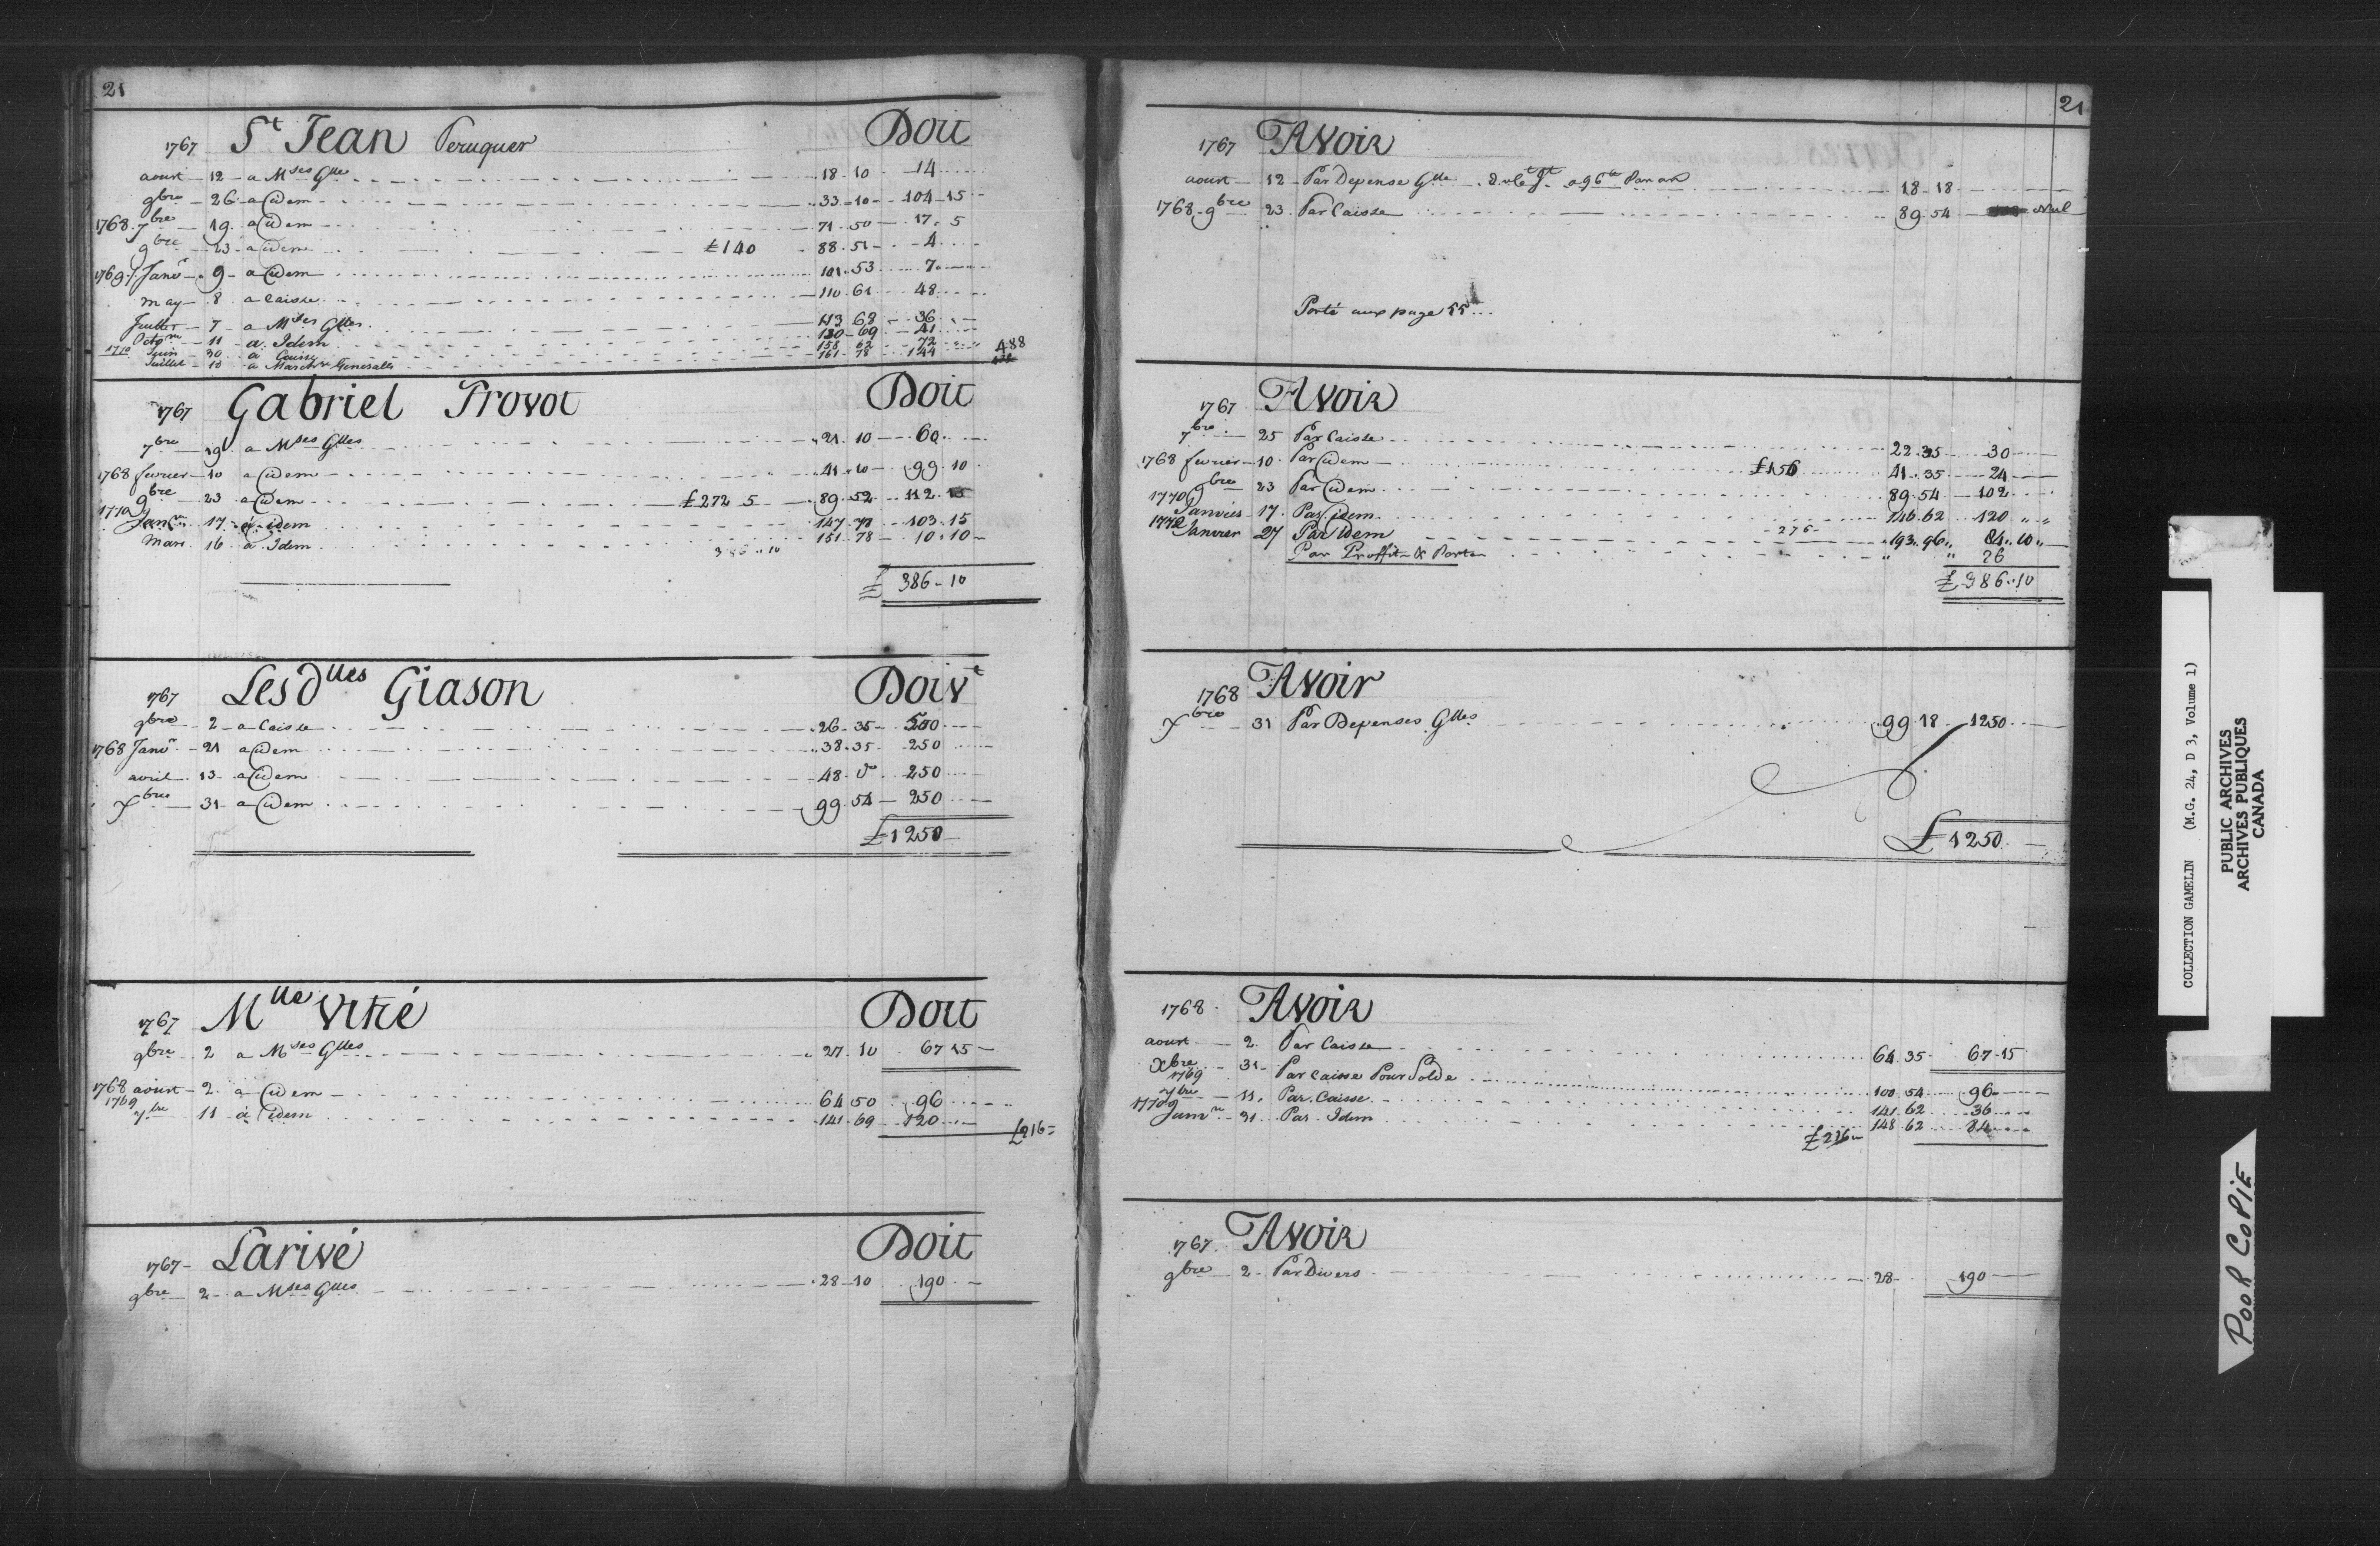 21
1767 St Jean Peruquer Doit
aoust 12 a Mses Glles 18 10 14
9bre 26 a idem 33 10 104 15
1768 7bre 19 a idem 71 50 17 5
9bre 23 a idem £140 88 51 4
1769 Janvr 9 a idem 101 53 7
may 8 a Caisse 110 61 48
Juillet 7 a Mses Glles 113 68 36
Octobre 11 a Idem 130 69 41
1770 Juin 30 a Caisse 158 62 72
Juillet 10 a Marchses Generalles 161 78 144 488
1767 Gabriel Provot Doit
7bre 19 a Mses Glles 21 10 60
1768 fevrier 10 a idem 41 10 99 10
9bre 23 a idem £272 5 89 52 112 15
1770 Janvr 17 a idem 147 78 103 15
Mars 16 a Idem 386 10 151 78 10 10
£ 386 10
1767 Les dlles Giason Doivt
9bre 2 a Caisse 26 35 500
1768 Janvr 21 a idem 38 35 250
avril 13 a idem 48 do 250
Xbre 31 a idem 99 54 250
£1250
1767 Mlle Vitré Doit
9bre 2 a Mses Glles 27 10 67 15
1768 aoust 2 a idem 64 50 96
1769 7bre 11 a idem 141 69 120 £216
1767 Larivé Doit
9bre 2 a Mses Glles 28 10 190
21
1767 Avoir
aoust 12 Par Depense Glle 18 18
1768 9bre 23 Par Caisse 89 54 Nul
Porté aux page 55
1767 Avoir
7bre 25 Par Caisse 22 35 30
1768 fevrier 10 Par idem £156 41 35 24
9bre 23 Par idem 89 54 102
1770 Janvier 17 Par idem 146 62 120
1772 Janvier 27 Par idem 276 193 96 84 10
Par Proffit & Perte 26
£ 386 10
1768 Avoir
Xbre 31 Par Depenses Glles 99 18 1250
£ 1250
1768 Avoir
aoust 2 Par Caisse 64 35 67 15
Xbre 31 Par Caisse Pour Solde 100 54 96
1769 7bre 11 Par Caisse 141 62 36
1770 Janvr 31 Par Idem £216 148 62 84
1767 Avoir
9bre 2 Par Divers 28 190
COLLECTION GAMELIN (M.G. 24, D 3, Volume 1)
PUBLIC ARCHIVES
ARCHIVES PUBLIQUES
CANADA
POOR COPIE